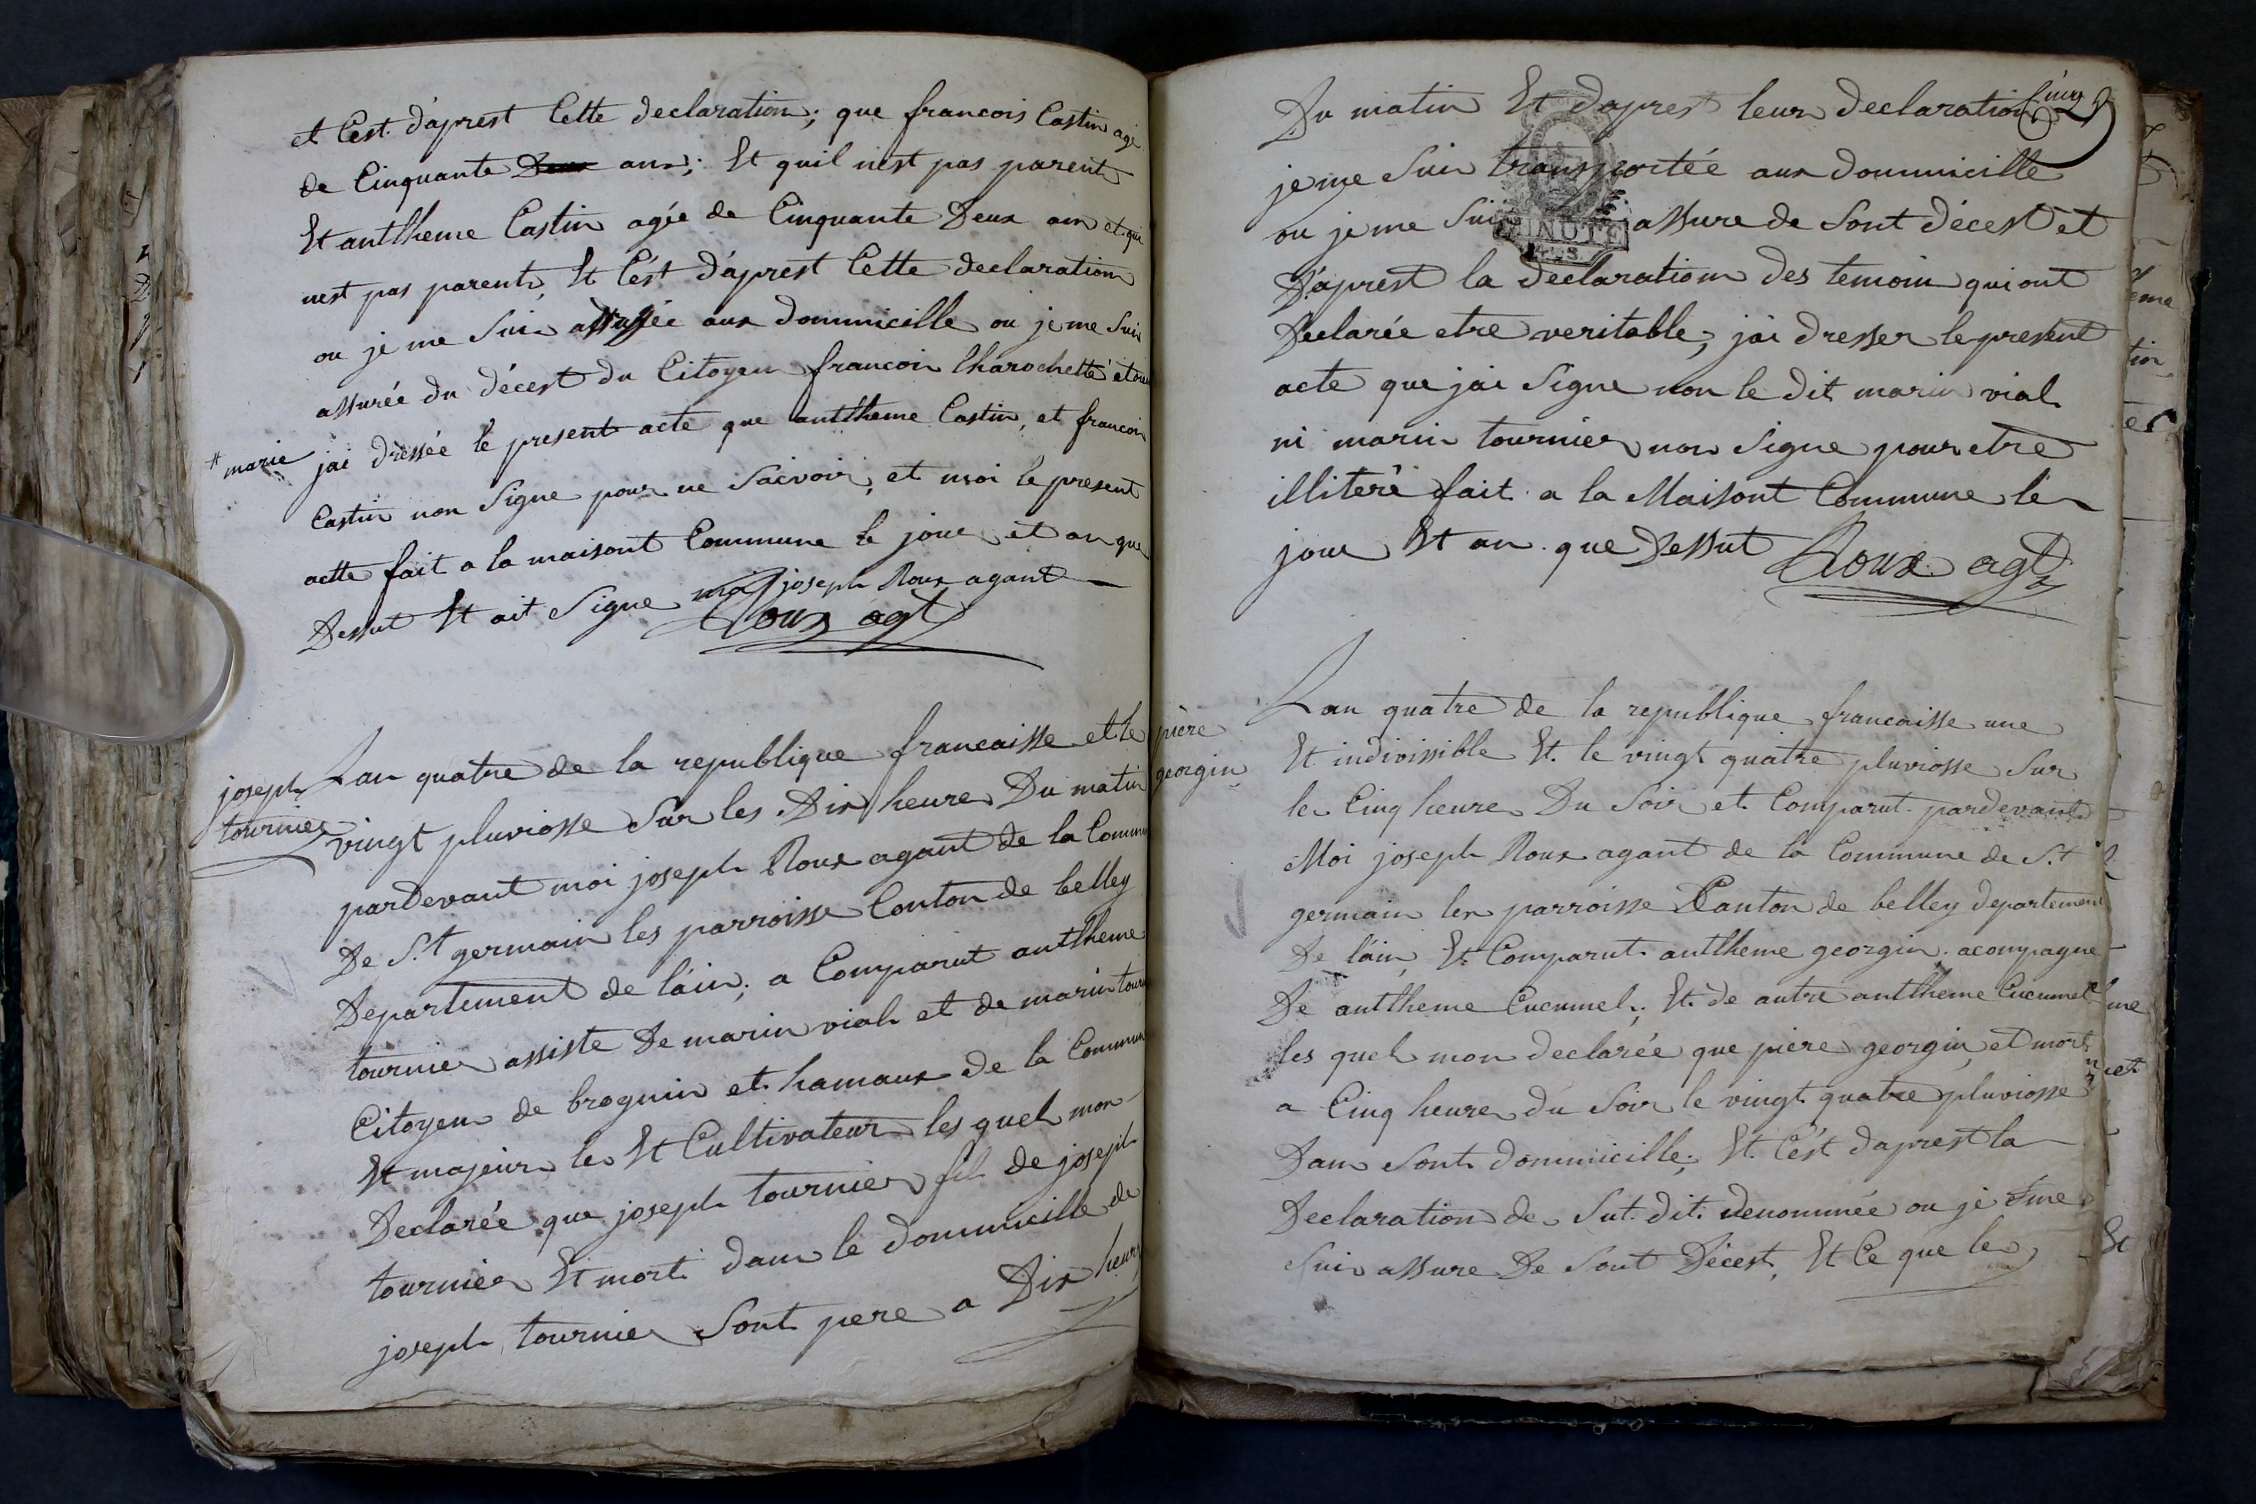 et C'est d'aprest Cette declaration; que francois Castin agé
de Cinquante Deux ans; Et quil nest pas parent
Et anttheme Castin agée de Cinquante Deux ans et qui
nest pas parents, Et C'ést d'aprest Cette declaration
ou je me Suis aux dommicille ou je me Suis
assurée du décest du Citoyen francois Charochette et ou
# marie
jai dressée le present acte que anttheme Castin, et francois
Castin non Signe pour ne Saivoir, et moi le present
actte fait a la maisont Commune le jour et an que
Dessut Et ait Signe moi joseph Roux agant
Roux agt
joseph
tournier
Lan quatre de la republique francaisse et le
vingt pluviosse Sur les Dix heures Du matin
pardevant moi joseph Roux agant de la Commu
De S.t germain les parroisse Canton de belley
Departement de láin; a Comparut anttheme
tournier assiste De marin vial et de marin tour
Citoyen de brognin et hamaux de la Commun
Et majeurs les Et Cultivateurs les quels mon
Declarée que joseph tournier fils de joseph
tournier Et mort dans le dommicille de
joseph tournier Sont pere a Dix heures
Cinq
Du matin Et daprest leurs declaration
je me Suis transportée aux dommicille
ou je me Suis assure de Sont décest et
MINUTE
D'aprest la declaration des temoin qui ont
Declarée etre veritable, jai dresser le present
acte que jai Signe non le dit marin vial
ni marin tournier non Signe pour etre
illiterè fait a la Maisont Commune le
jour Et an que Dessut Roux agt
pière
georgin
Lan quatre de la republique francaisse une
Et indivissible Et le vingt quatre pluviosse Sur
les Cinq heures Du Soir et Comparut pardevant
Moi joseph Roux agant de la Commune de S.t
germain les parroisse Canton de belley departement
De láin Et Comparut anttheme georgin acompagne
De anttheme Cucumel; Et de autre anttheme Cucumel
les quels mon declarée que pière georgin et mort
a Cinq heures du Soir le vingt quatre pluviosse
Dans Sont dommicille; Et C'ést daprest la
Declaration des Sut dit denommée ou je me
Suis assure De Sont Décest, Et Ce que les